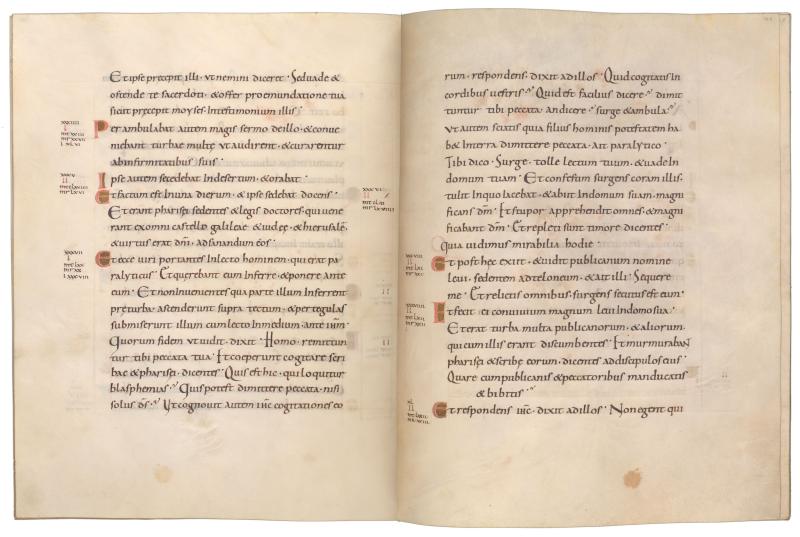 Et ipse precepit illi · Ut nemini diceret · Sed vade &
ostende te sacerdoti · & offer pro emundatione tua
sicut precepit moyses · In testimonium illis ·
Per ambulabat autem magis sermo de illo · & conve
niebant turbae multę ut audirent · & curarentur
ab infirmitatibus suis ·
Ipse autem secedebat In desertum · & orabat ·
Et factum est In una dierum · & ipse sedebat docens ·
Et erant pharisei sedentes & legis doctores · qui vene
rant ex omni castello galileae & iudeę · & hierusalē ·
& virtus erat dn̄i · ad sanandum eos ·
Et ecce viri portantes In lecto hominem · qui erat pa
ralyticus · Et querebant eum Inferre · & ponere ante
eum · Et non Invenientes qua parte illum Inferrent
prę turba · ascenderunt supra tectum · & per tegulas
submiserunt illum cum lecto In medium · ante ih̄m ·
Quorum fidem ut vidit · dixit · Homo · remittun
tur tibi peccata tua · Et coeperunt cogitare scri
bae & pharisei · dicentes · Quis est hic · qui loquitur
blasphemias · Quis potest dimittere peccata · nisi
solus ds̄ · Ut cognovit autem ih̄c cogitationes eo
rum · respondens · dixit ad illos · Quid cogitatis In
cordibus vestris · Quid est facilius dicere · dimit
tuntur tibi peccata · an dicere · surge & ambula ·
Ut autem sciatis quia filius hominis potestatem ha
b& In terra dimittere peccata · Ait paralytico ·
Tibi dico · Surge · tolle lectum tuum · & vade In
domum tuam · Et confestim surgens coram illis ·
tulit In quo iacebat · & abiit In domum suam · magni
ficans dm̄ · Et stupor apprehendit omnes · & magni
ficabant dm̄ · Et repleti sunt timore dicentes ·
Quia vidimus mirabilia hodie ·
Et post hęc exiit · & vidit publicanum nomine
levi · sedentem ad teloneum · & ait illi · Sequere
me · Et relictis omnibus · surgens secutus est eum ·
Et fecit ei convivium magnum levi In domo sua ·
Et erat turba multa publicanorum · & aliorum ·
qui cum illis erant discumbentes · Et murmurabant
pharisei & scribę eorum · dicentes ad discipulos eius ·
Quare cum publicanis & peccatoribus manducatis
& bibitis ·
Et respondens ih̄c · dixit ad illos · Non egent qui